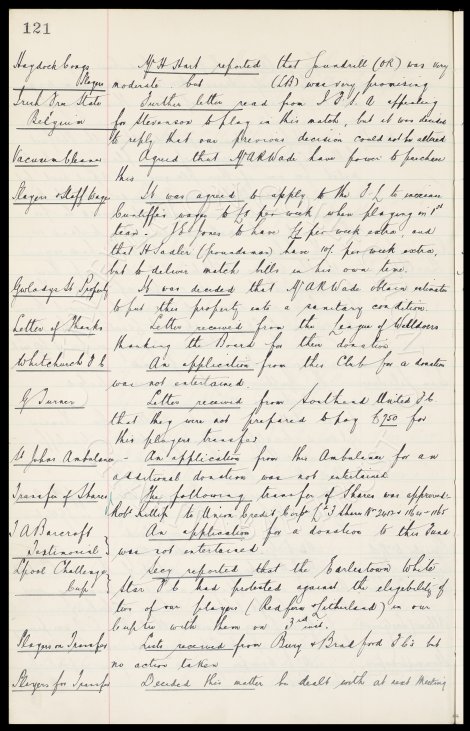 121
Haydock Congs Mr H Hart reported that Goundrill (OR) was very
Players moderate but (LB) was very promising
Irish Free State Further letter read from I F A appealing
Belgium for Stevenson to play in this match, but it was decided
to reply that our previous decision could not be altered
Vacuum Cleaner Agreed that Mr A R Wade have power to purchase
this
Players & Staff Wages It was agreed to apply to the F L to increase
Cunliffe's wages to per week when playing in 1st
team. J E Jones to have £1 per week extra and
that H Sadler (groundsman) have 10/- per week extra,
but to deliver match bills in his own time.
Gwladys St Property It was decided that Mr A R Wade obtain estimates
to put this property into a sanitary condition.
Letter of Thanks Letter received from the League of Welldoers
thanking the Board for their donation
Whitchurch F C An application from this Club for a donation
was not entertained.
G Turner Letter received from Southend United F C
that they were not prepared to pay £750 for
this players transfer
St Johns Ambulance - An application from this Ambulance for an
additional donation was not entertained
Transfer of Shares The following transfer of Shares was approved:-
Robt to Union Credit Corp Ltd 3 Shares
J A Barcroft An application for a donation to this Fund
Testimonial was not entertained
L'pool Challenge Secy reported that the Earlestown White
Cup Star F C had protested against the eligibility of
two of our players (Redfern & Litherland) in our
cup tie with them on 3rd inst.
Players on Transfer Lists received from Bury & Bradford F C's but
no action taken
Players for Transfer Decided this matter be dealt with at next Meeting